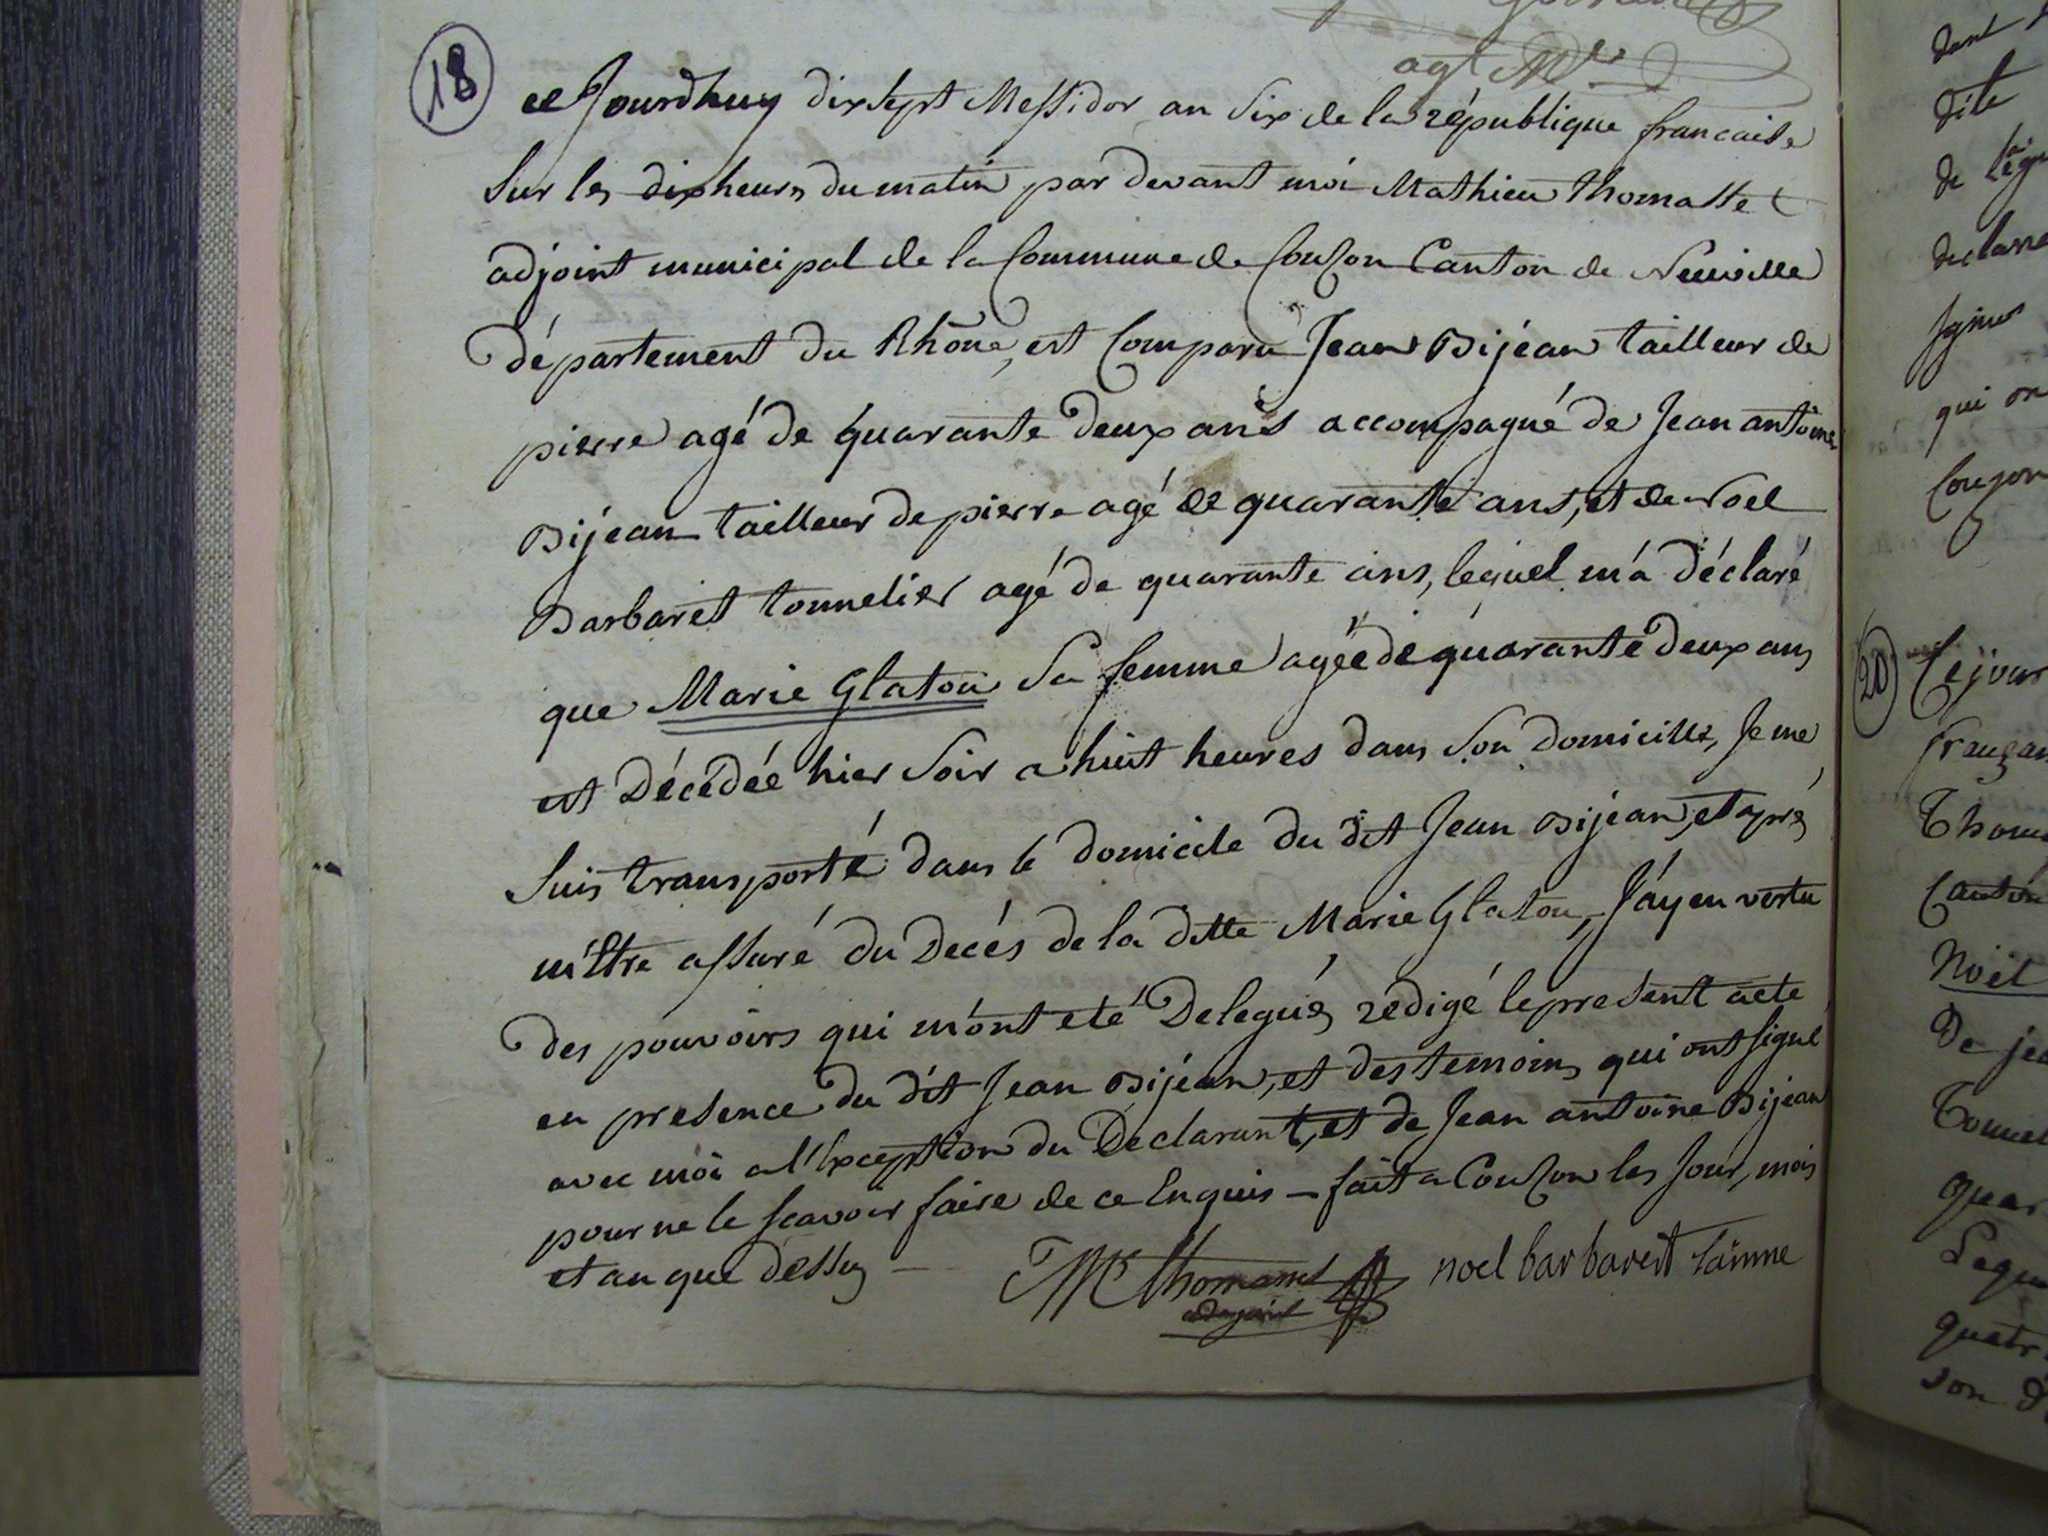 agt Mpl
18
ce Jourdhuy dix Sept Messidor an Six de la république francaise
Sur les dix heures du matin par devant moi Mathieu Thomasse
adjoint municipal de la Commune de Couson Canton de Neuville
département du Rhône, est Comparu Jean Bijéan tailleur de
pierre agé de quarante deux ans accompagné de Jean antoine
Bijéan tailleur de pierre agé de quarante ans, et de Noel
Barbaret tonnelier agé de quarante ans, lequel m'a déclaré
que Marie Glatou Sa femme agée de quarante deux ans
est Décédée hier Soir a huit heures dans Son domicille, Je me
Suis transporté dans le domicile du dit Jean Bijéan, et après
m'Etre assuré du Decés de la ditte Marie Glatou, J'ay en vertu
des pouvoirs qui m'ont eté Delegués, rédigé le present acte
en presence du dit Jean Bijéan, et des temoins qui ont signé
avec moi a l'Exception du Déclarant, et de Jean antoine Bijéan
pour ne le scavoir faire de ce Enquis - fait a Couson les Jour, mois
et an que dessus
M Thomasset noel barbarest l'ainne
adejoint
dant
dite
de
declare
signer
qui on
Couzon
20
Ce jour
françai
Thom
Canton
Noël
De jea
Tonnel
quar
Lequ
quatr
son d